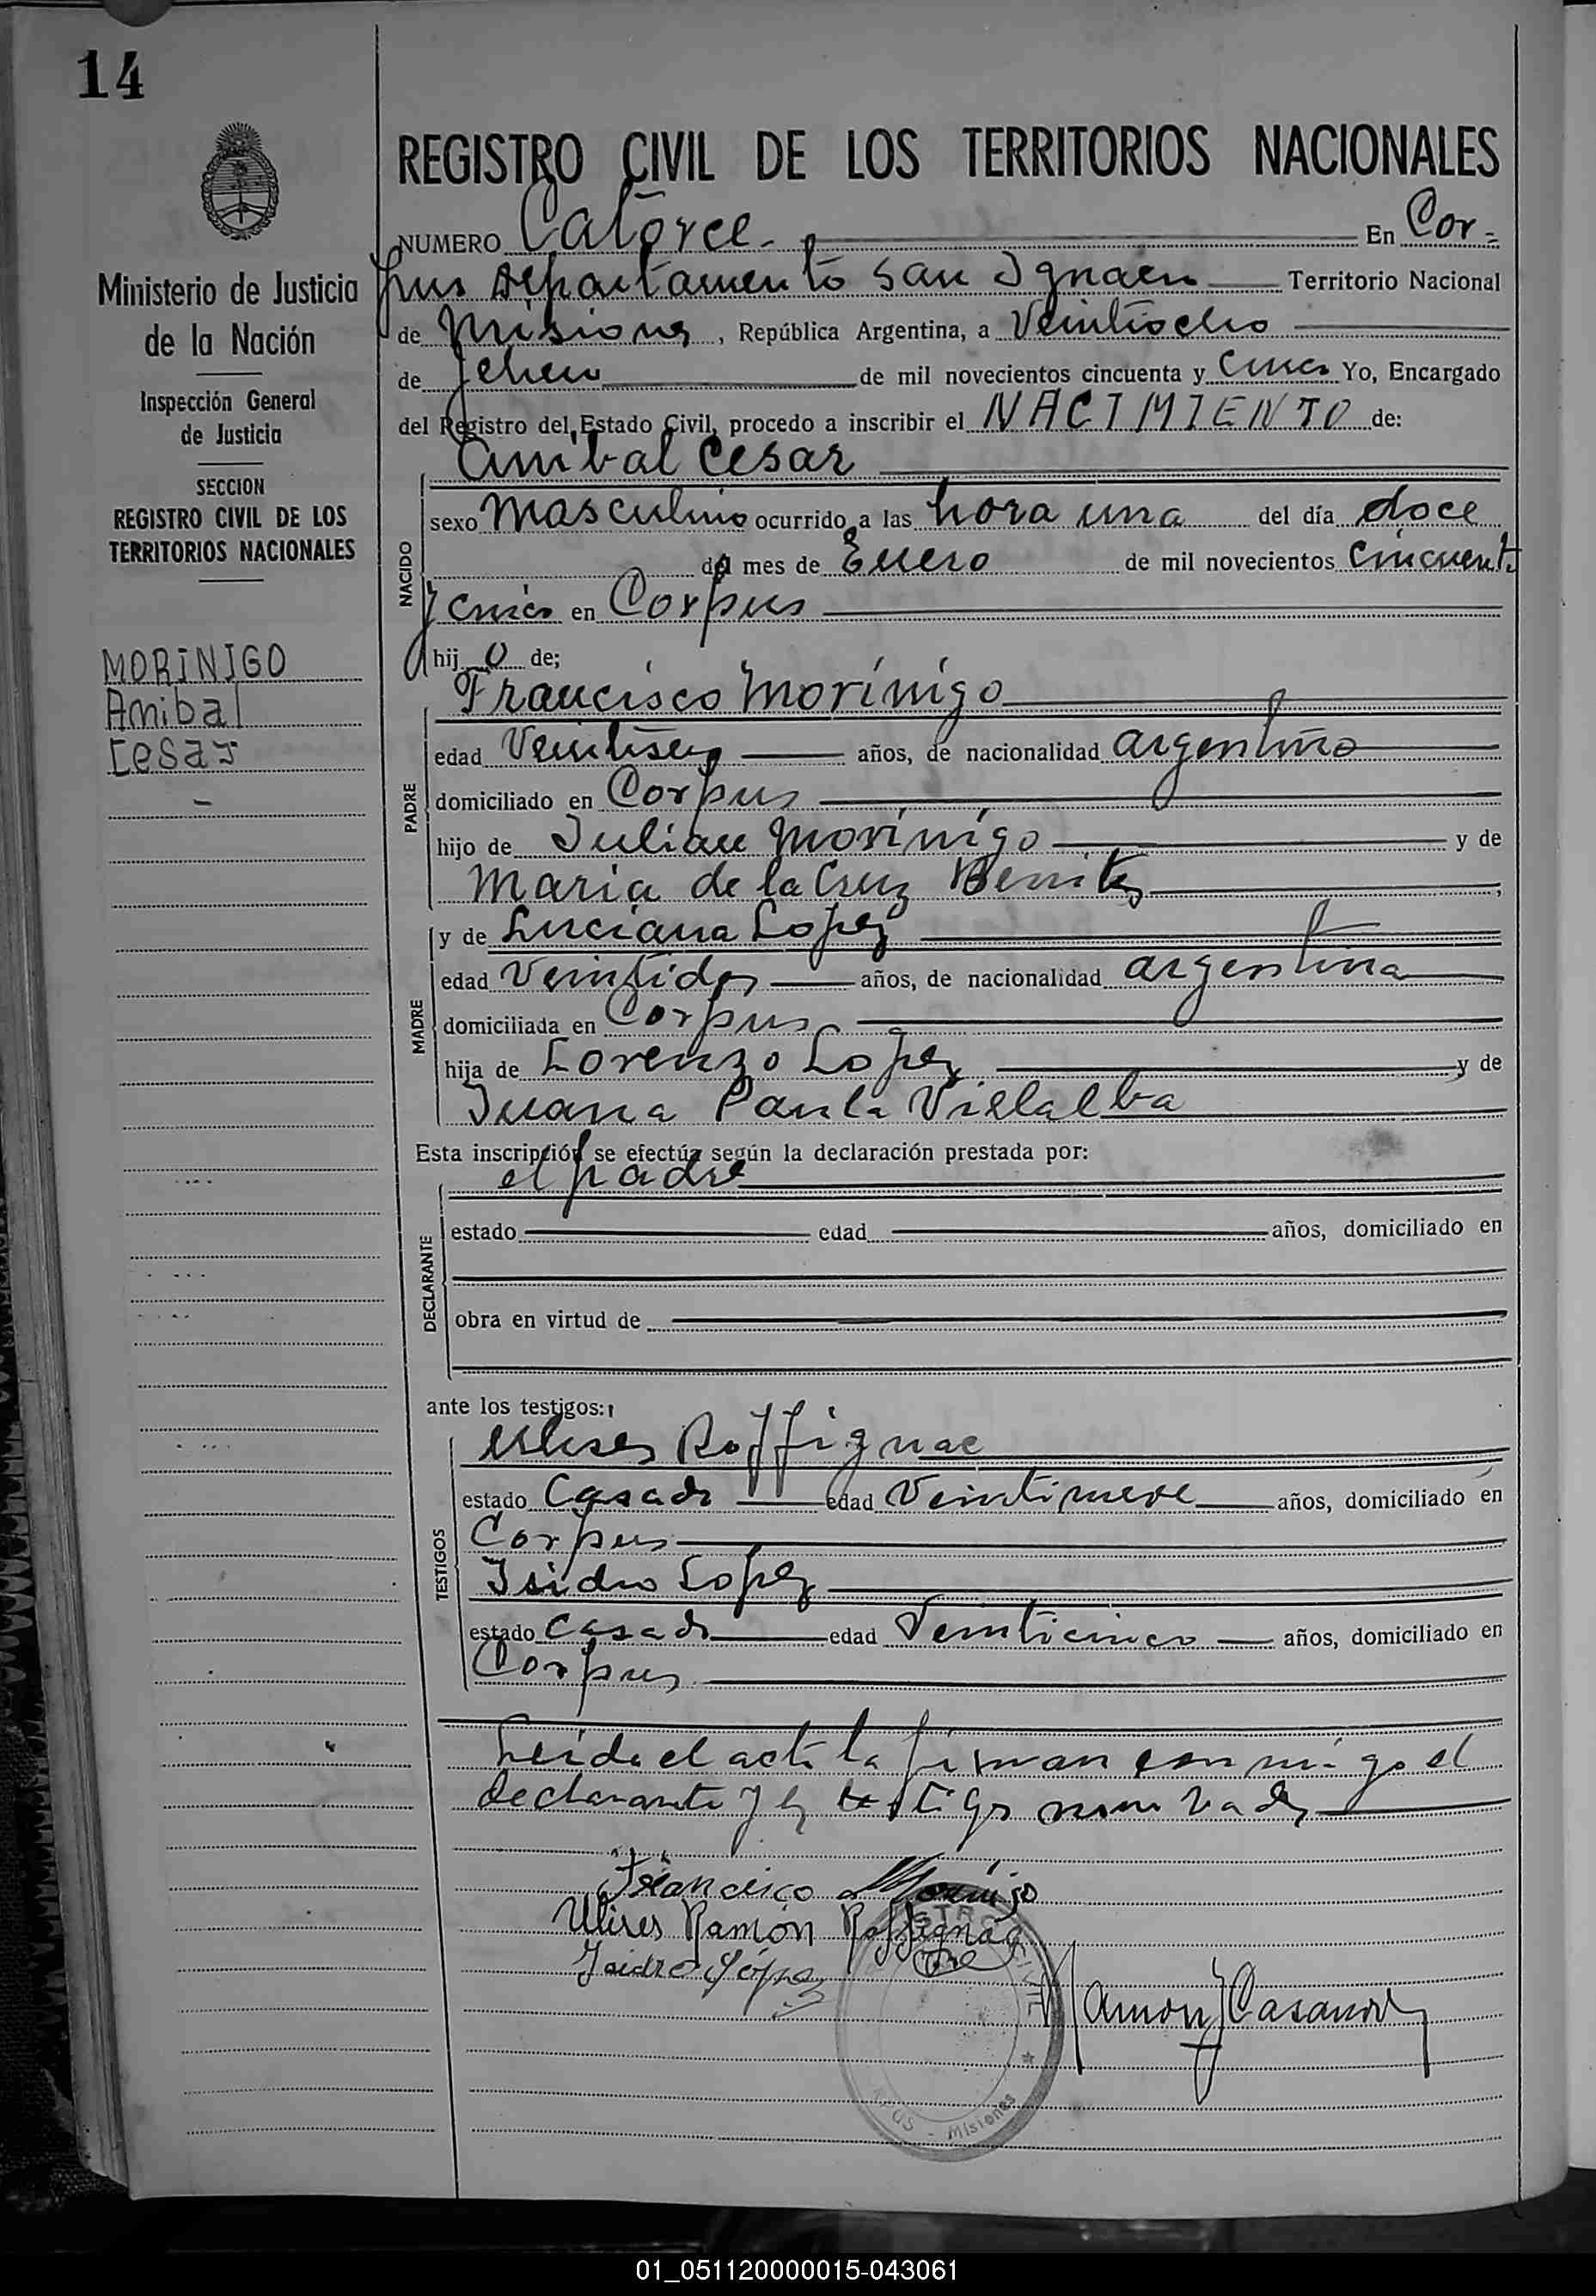 14
REGISTRO CIVIL DE LOS TERRITORIOS NACIONALES
NUMERO Catorce En Cor=
pus departamento San Ignacio Territorio Nacional
de Misiones, República Argentina, a Veintiocho
de de mil novecientos cincuenta y cinco Yo, Encargado
del Registro del Estado Civil, procedo a inscribir el NACIMIENTO de:
Anibal Cesar
NACIDO
sexo Masculino ocurrido a las hora una del día doce
del mes de Enero de mil novecientos cincuenta
y cinco en Corpus
hij o de;
Francisco Morínigo
PADRE
edad Veintiseis años, de nacionalidad argentino
domiciliado en Corpus
hijo de Julian Morínigo y de
Maria de la Cruz Benitez ;
y de Luciana Lopez
MADRE
edad Veintidos años, de nacionalidad argentina
domiciliada en Corpus
hija de Lorenzo Lopez y de
Juana Paula Villalba
Esta inscripción se efectúa según la declaración prestada por:
el padre
DECLARANTE
estado edad años, domiciliado en
obra en virtud de
ante los testigos:
TESTIGOS
Ulises Roffignac
estado Casado edad Veintinueve años, domiciliado en
Corpus
Isidro Lopez
estado Casado edad Veinticinco años, domiciliado en
Corpus
Leida el acta la firman conmigo el
declarante y los testigos nombrados
Francisco Morinigo
Ulises Ramón Roffignac
Isidro López
Ramon Casanova
Ministerio de Justicia
de la Nación
Inspección General
de Justicia
SECCION
REGISTRO CIVIL DE LOS
TERRITORIOS NACIONALES
MORINIGO
Anibal
Cesar
01_051120000015-043061